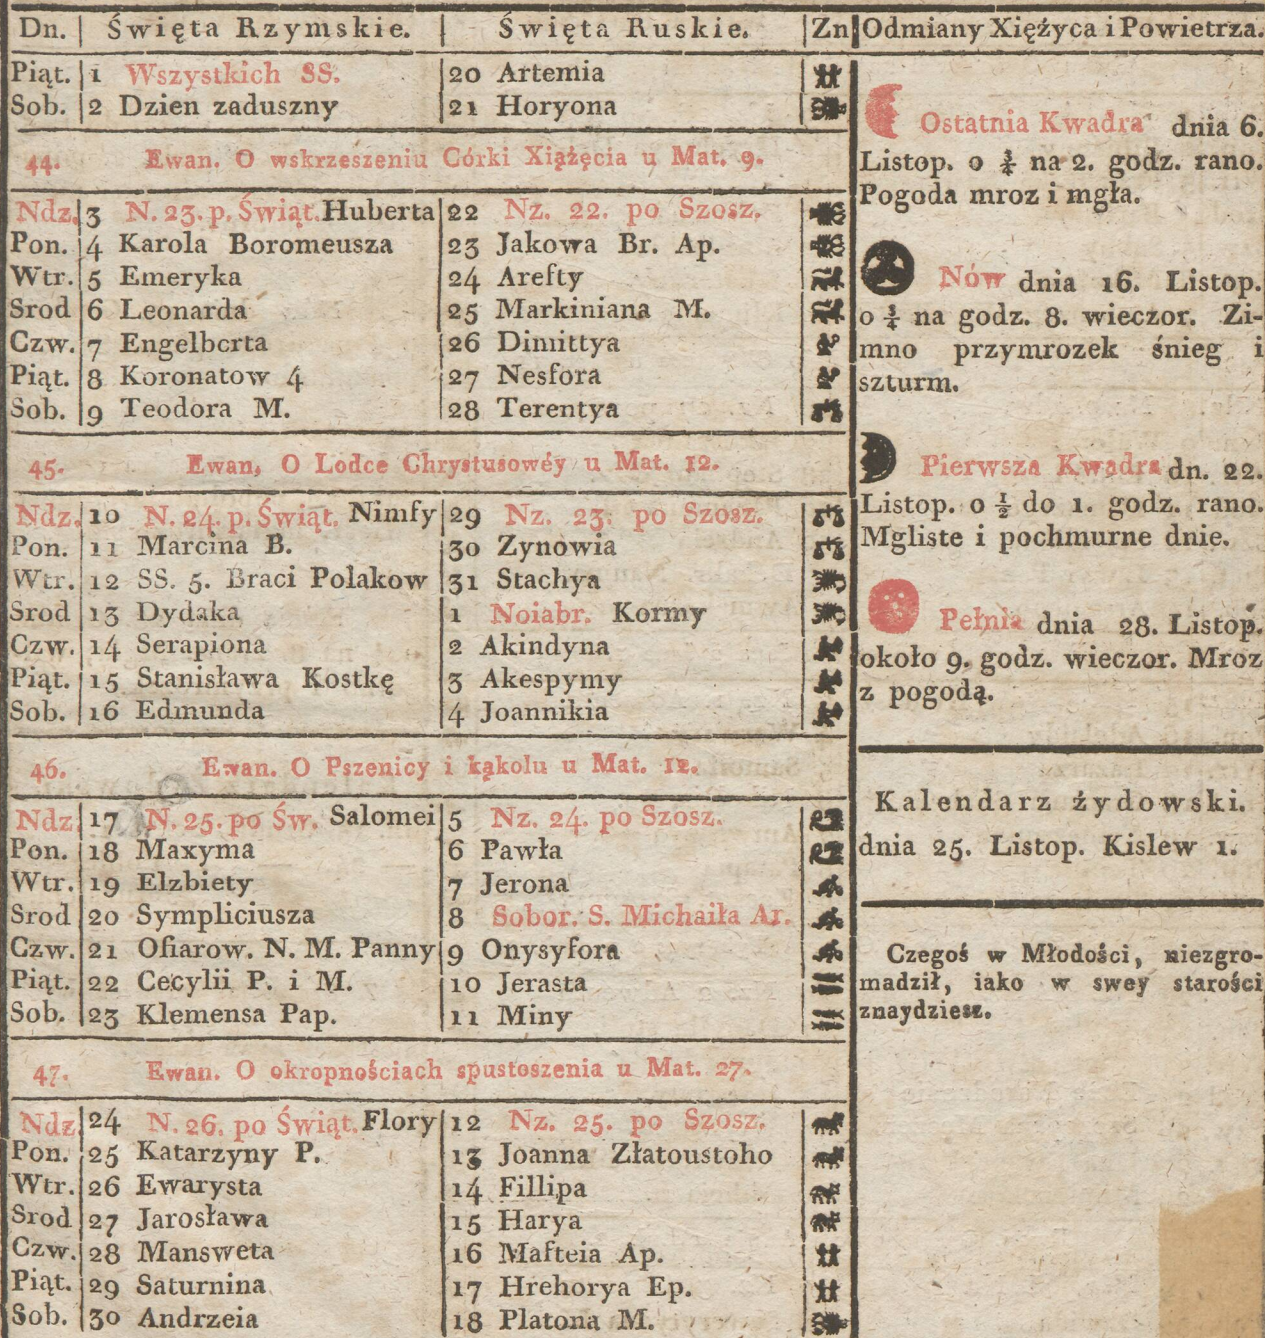 Dn. Święta Rzymskie. Święta Ruskie. Zn Odmiany Xiężyca i Powietrza.
Piąt. 1 Wszystkich SS. 20 Artemia
Sob. 2 Dzien zaduszny 21 Horyona
44. Ewan. O wskrzeszeniu Córki Xiążęcia u Mat. 9.
Ndz. 3 N. 23. p. Świąt. Huberta 22 Nz. 22. po Szosz.
Pon. 4 Karola Boromeusza 23 Jakowa Br. Ap.
Wtr. 5 Emeryka 24 Arefty
Srod 6 Leonarda 25 Markiniana M.
Czw. 7 Engelbcrta 26 Dimittya
Piąt. 8 Koronatow 4 27 Nesfora
Sob. 9 Teodora M. 28 Terentya
45. Ewan, O Lodce Chrystusowéy u Mat. 12.
Ndz. 10 N. 24. p. Świąt. Nimfy 29 Nz. 23. po Szosz.
Pon. 11 Marcina B. 30 Zynowia
Wtr. 12 SS. 5. Braci Polakow 31 Stachya
Srod 13 Dydaka 1 Noiabr. Kormy
Czw. 14 Serapiona 2 Akindyna
Piąt. 15 Stanisława Kostkę 3 Akespymy
Sob. 16 Edmunda 4 Joannikia
46. Ewan. O Pszenicy i kąkolu u Mat. 12.
Ndz 17 N. 25. po Św. Salomei 5 Nz. 24. po Szosz.
Pon. 18 Maxyma 6 Pawła
Wtr. 19 Elzbiety 7 Jerona
Srod 20 Sympliciusza 8 Sobor. S. Michaiła Ar.
Czw. 21 Ofiarow. N. M. Panny 9 Onysyfora
Piąt. 22 Cecylii P. i M. 10 Jerasta
Sob. 23 Klemensa Pap. 11 Miny
47. Ewan. O okropnościach spustoszenia u Mat. 27.
Ndz 24 N. 26. po Świąt. Flory 12 Nz. 25. po Szosz.
Pon. 25 Katarzyny P. 13 Joanna Złatoustoho
Wtr. 26 Ewarysta 14 Fillipa
Srod 27 Jarosława 15 Harya
Czw. 28 Mansweta 16 Mafteia Ap.
Piąt. 29 Saturnina 17 Hrehorya Ep.
Sob. 30 Andrzeia 18 Platona M.
Ostatnia Kwadra dnia 6.
Listop. o ¾ na 2. godz. rano.
Pogoda mroz i mgła.
Nów dnia 16. Listop.
o ¾ na godz. 8. wieczor. Zi-
mno przymrozek śnieg i
szturm.
Pierwsza Kwadra dn. 22.
Listop. o ½ do 1. godz. rano.
Mgliste i pochmurne dnie.
Pełnia dnia 28. Listop.
około 9. godz. wieczor. Mroz
z pogodą.
Kalendarz żydowski.
dnia 25. Listop. Kislew 1.
Czegoś w Młodości, niezgro-
madził, iako w swey starości
znaydziesz.